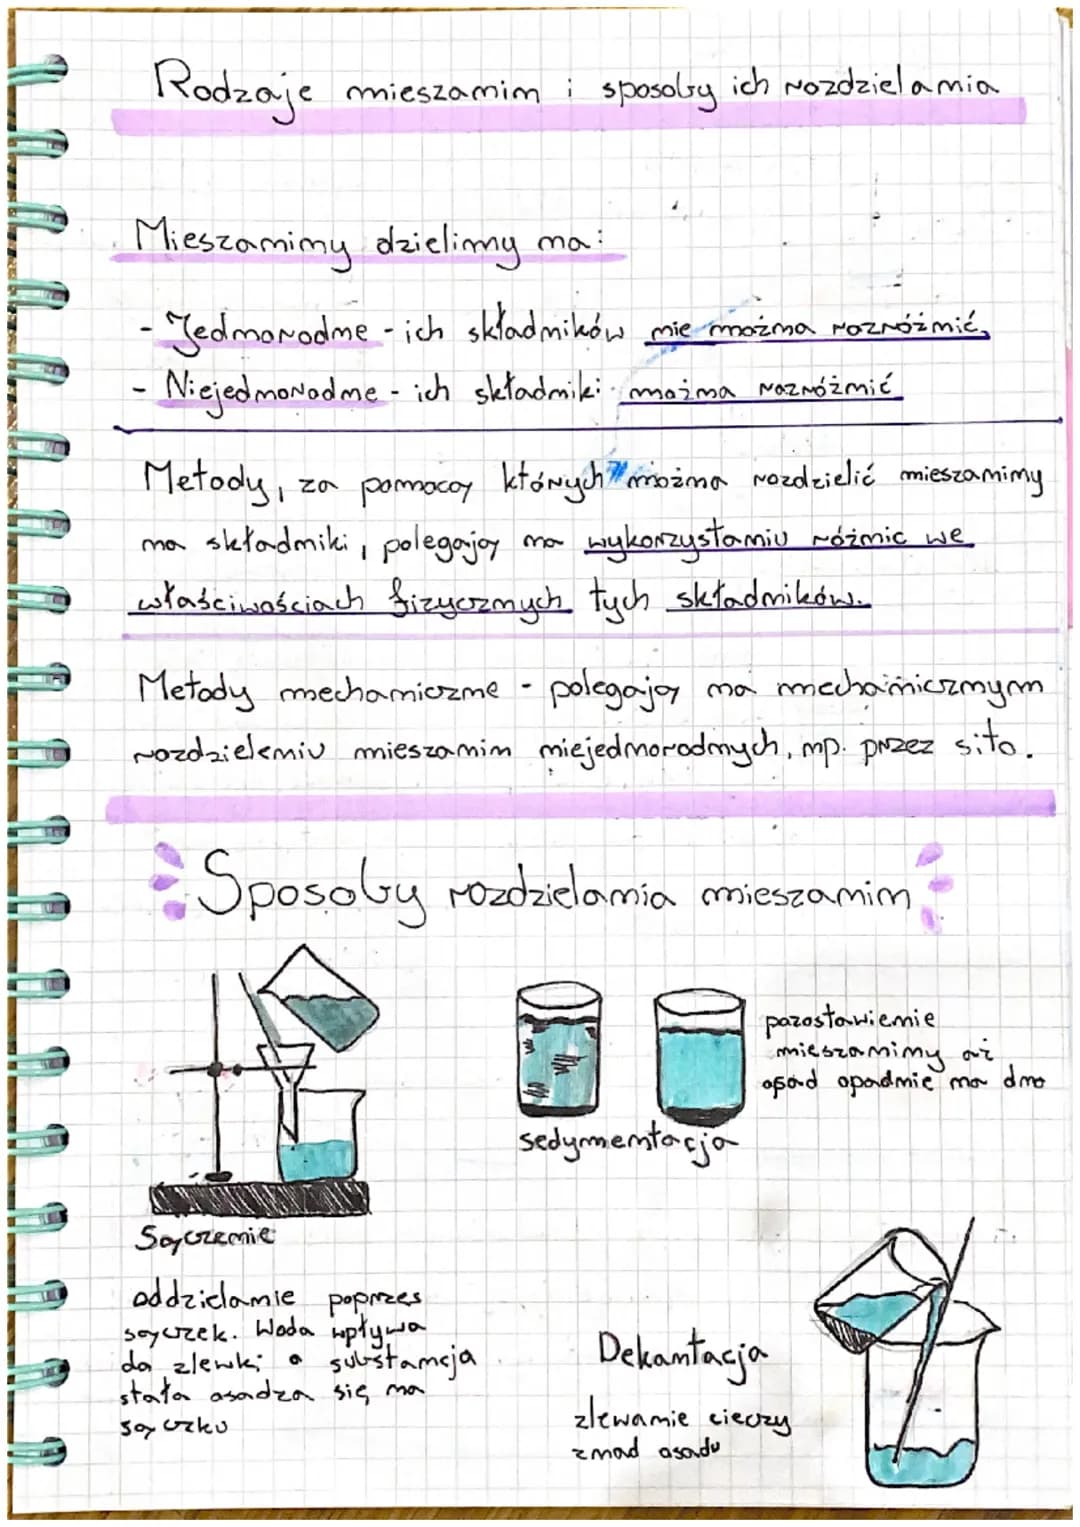 Rodzaje mieszanin i sposoby ich rozdzielania
Mieszaniny dzielimy na:
- Jednorodne - ich składników nie można rozróżnić,
- Niejednorodne - ich składniki można rozróżnić
Metody, za pomocą których można rozdzielić mieszaniny
na składniki, polegają na wykorzystaniu różnic we
właściwościach fizycznych tych składników.
Metody mechaniczne - polegają na mechanicznym
rozdzieleniu mieszanin niejednorodnych, np. przez sito.
Sposoby rozdzielania mieszanin
pozostawienie
mieszaniny aż
osad opadnie na dno
sedymentacja
Sączenie
oddzielanie poprzez
sączek. Woda wpływa
do zlewki a substancja
stała osadza się na
sączku
Dekantacja
zlewanie cieczy
znad osadu